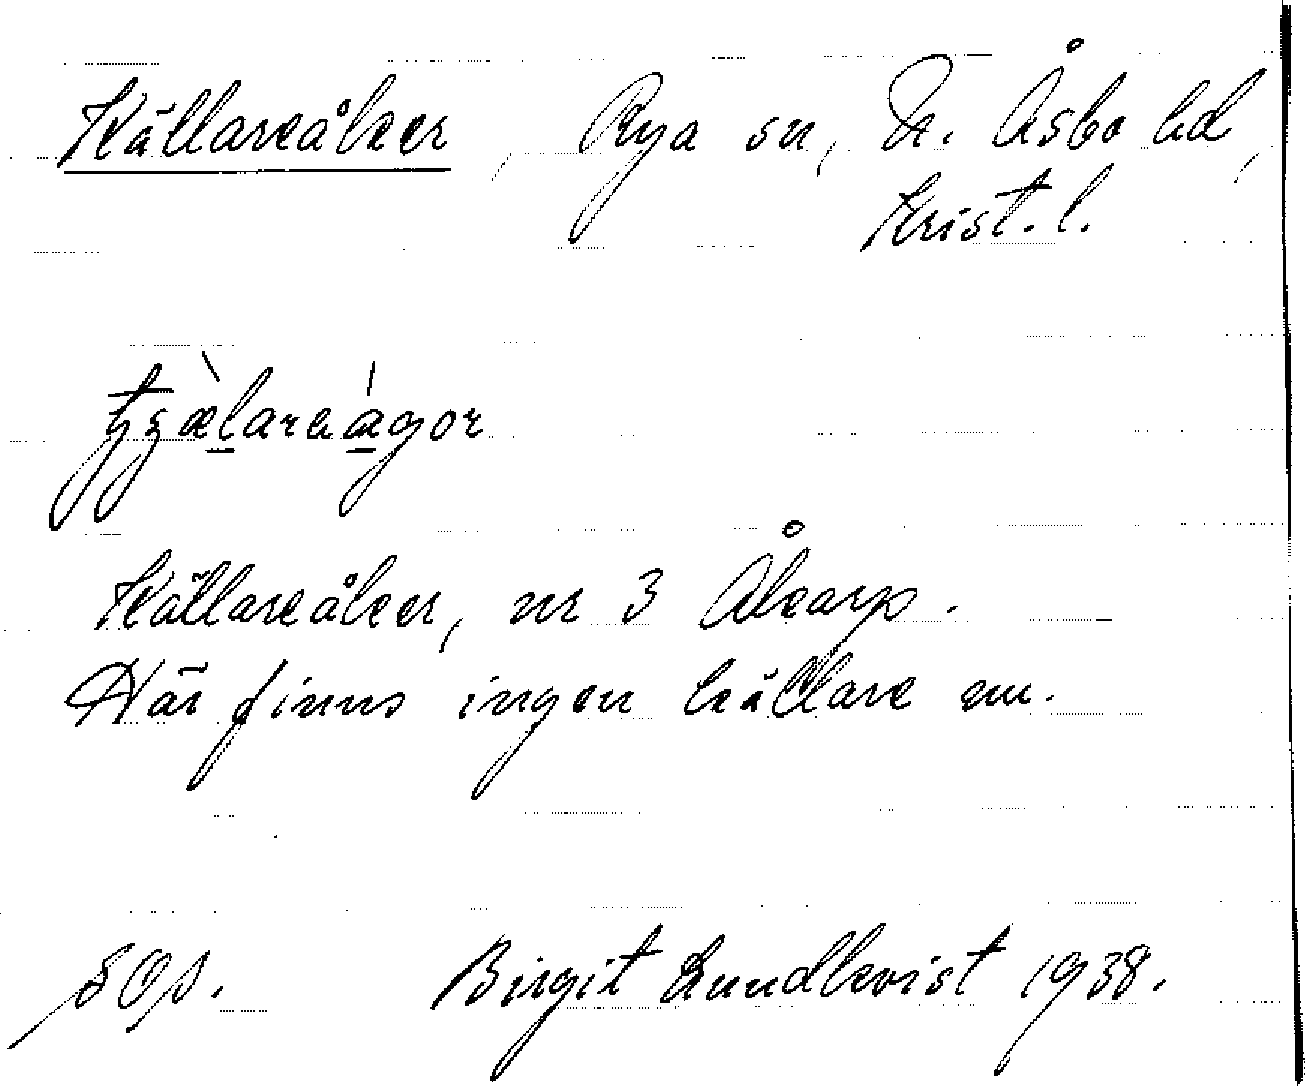 Källareåker, Rya sn, N. Åsbo hd,
Krist. l.
Källareåker, nr 3 Åkarp.
Här finns ingen källare nu.
Birgit Lundkvist 1938.